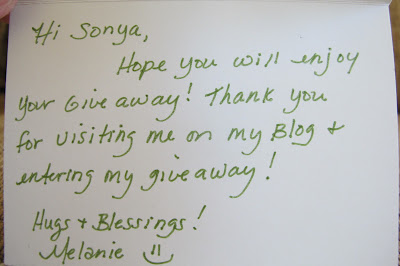 Hi Sonya,
Hope you will enjoy
your Give away! Thank you
for visiting me on my Blog +
entering my giveaway!
Hugs + Blessings!
Melanie